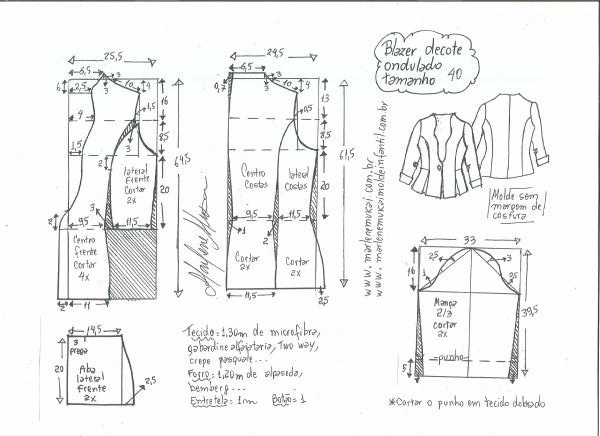 Blazer decote
ondulado
tamanho 40
25,5
6,5
6
2,5
3
3
10
4
16
4,5
4
8,5
3
1,5
2
20
lateral
Frente
Cortar
2x
64,5
3
2
9,5
11,5
Centro
frente
Cortar
4x
2
11
24,5
6,5
0,7
3
10
4
13
0,5
8,5
20
61,5
Centro
Costas
lateral
Costas
9,5
11,5
1
2
Cortar
2x
Cortar
2x
11,5
2,5
www.marlenemukai.com.br
www.marlenemukaimoldeinfantil.com.br
Molde sem
margem de
costura
33
16
2,5
3
1
2,5
39,5
Manga
2/3
cortar
2x
=punho=
5
*Cortar o punho em tecido dobrado
14,5
3
prega
20
Aba
lateral
frente
2x
2,5
Tecido=1,30m de microfibra,
gabardine alfaiataria, Two way,
crepe pasquale...
Forro=1,20m de alpaseda,
bemberg...
Entretela=1m Botão=1